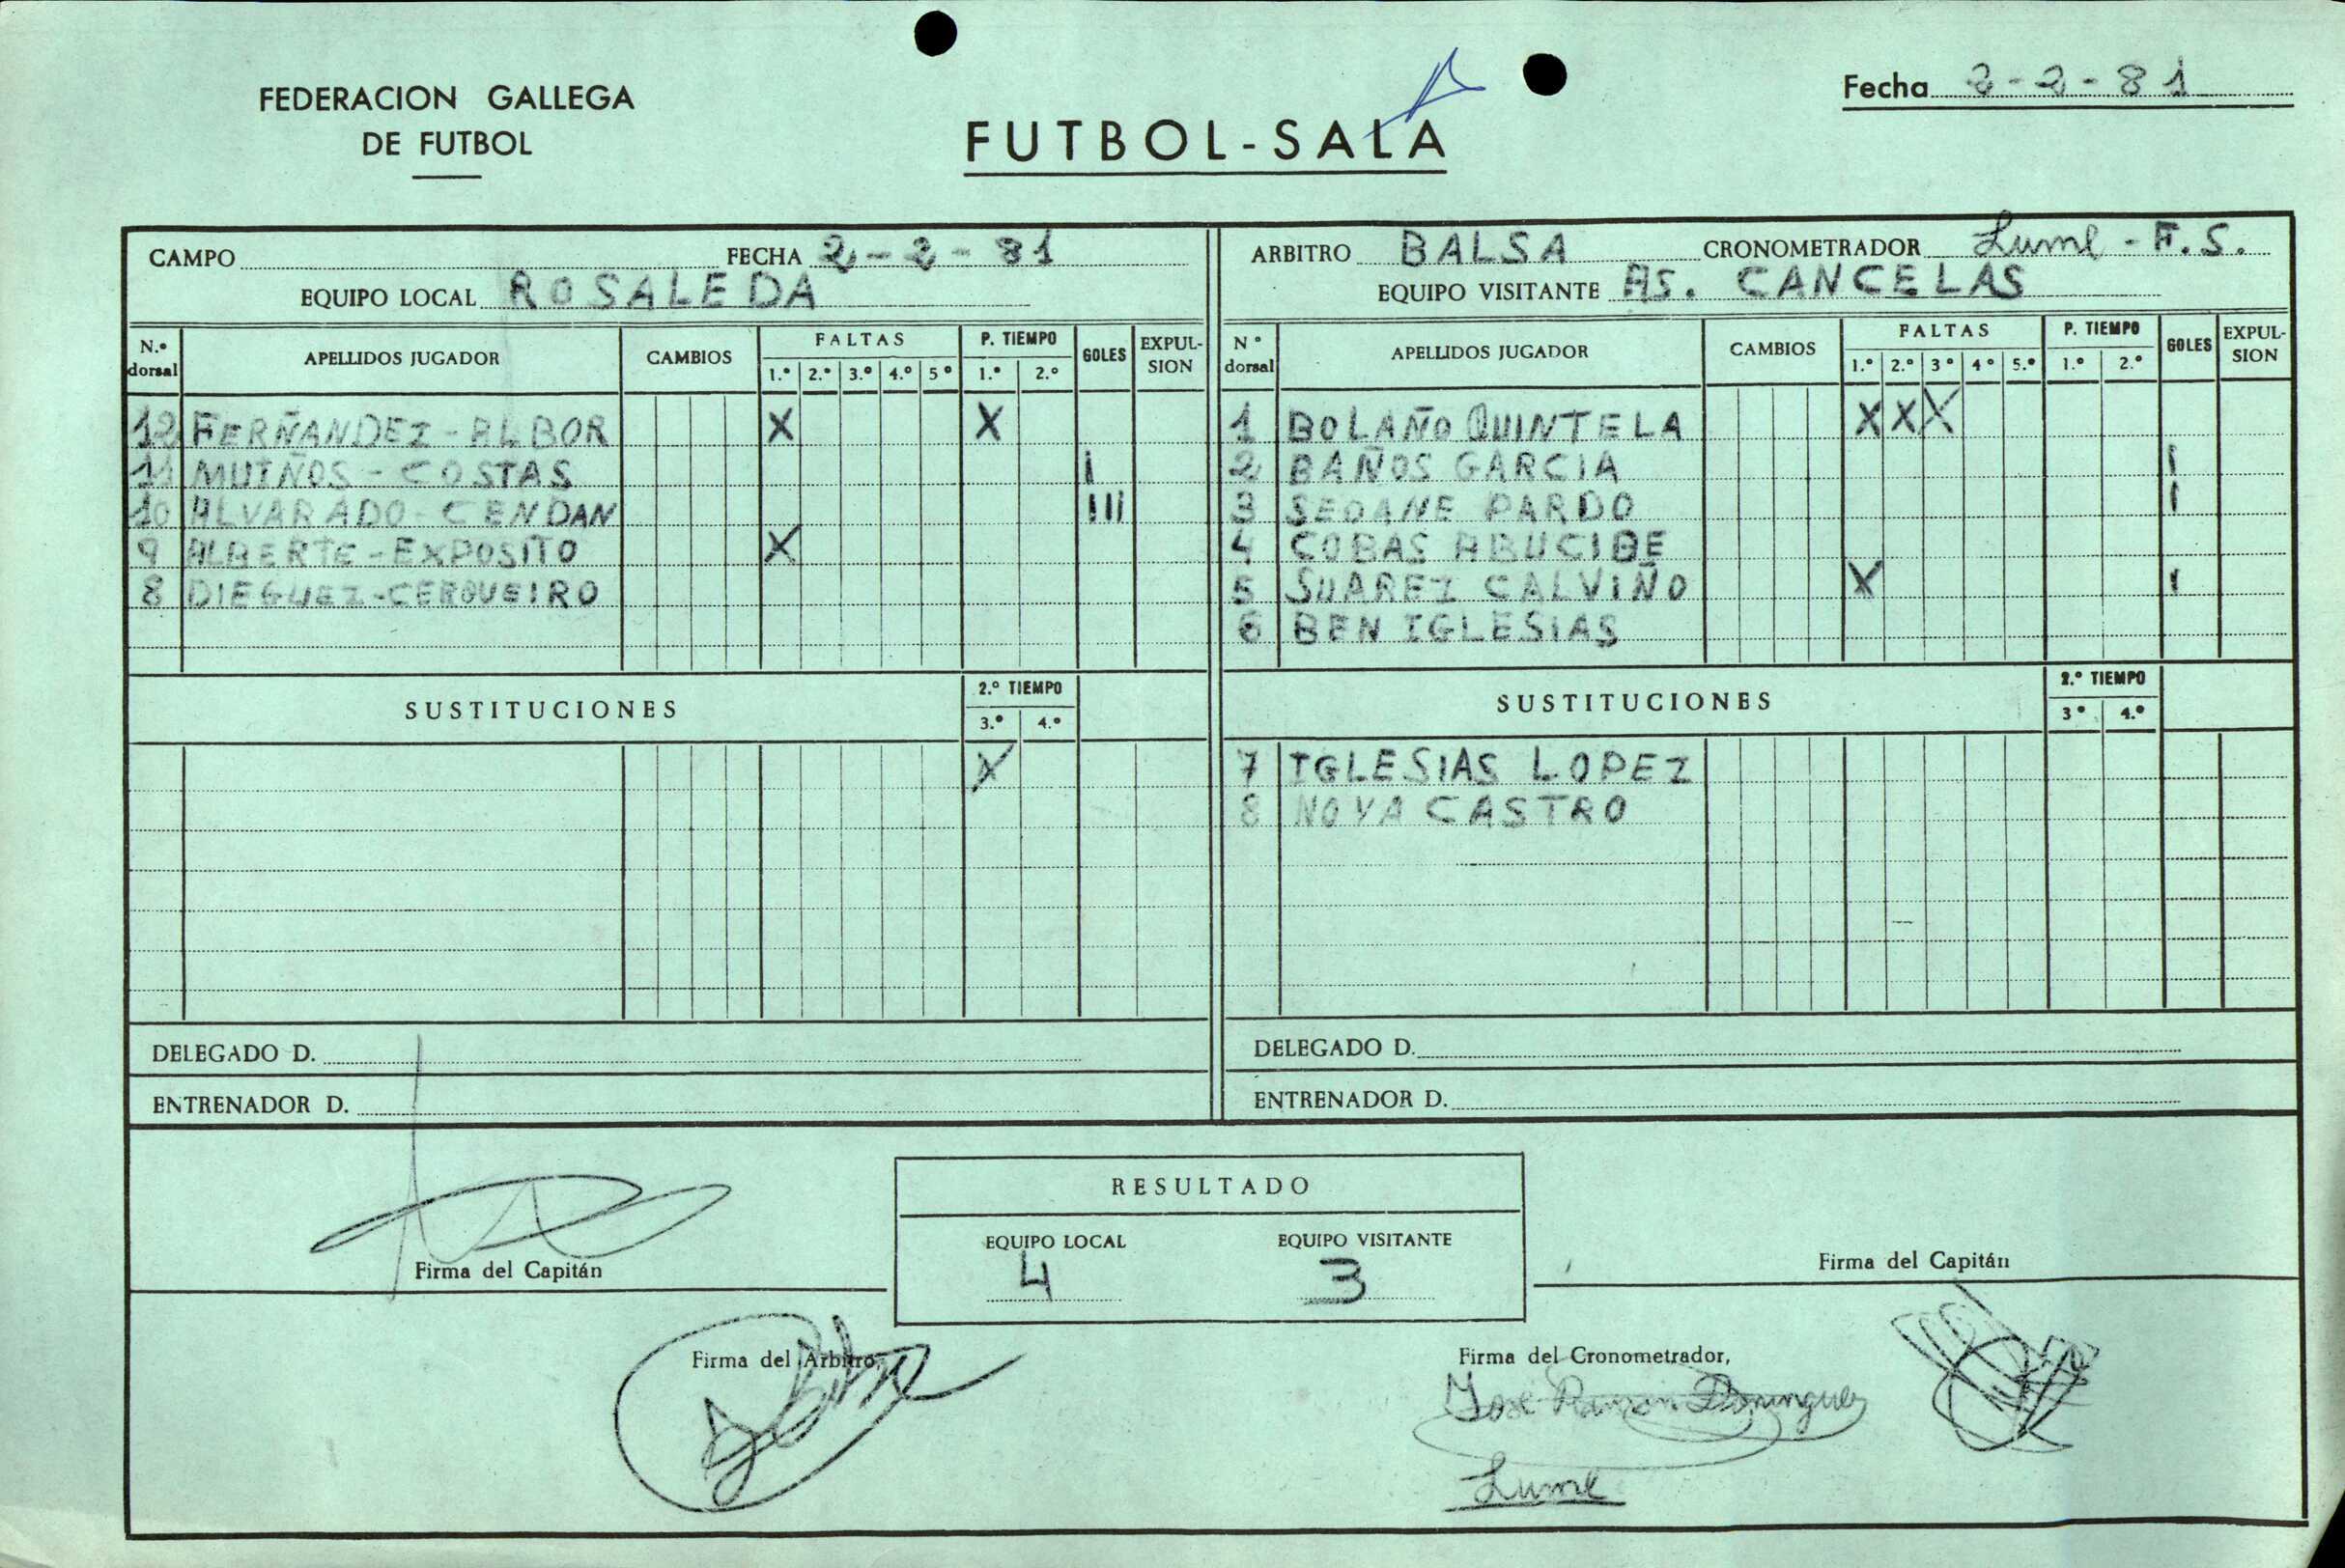 FEDERACION GALLEGA
DE FUTBOL
FUTBOL-SALA
Fecha 2-2-81
CAMPO FECHA 2-2-81
EQUIPO LOCAL ROSALEDA
N.º dorsal APELLIDOS JUGADOR CAMBIOS FALTAS 1.º 2.º 3.º 4.º 5º P. TIEMPO 1.º 2.º GOLES EXPUL-SION
12 FERÑANDEZ-ALBOR X X
11 MUIÑOS-COSTAS I
10 ALVARADO-CENDAN III
9 ALBERTE-EXPOSITO X
8 DIEGUEZ-CERQUEIRO
SUSTITUCIONES 2.º TIEMPO 3.º 4.º
X
DELEGADO D.
ENTRENADOR D.
ARBITRO BALSA CRONOMETRADOR Lume - F.S.
EQUIPO VISITANTE AS. CANCELAS
Nº dorsal APELLIDOS JUGADOR CAMBIOS FALTAS 1.º 2.º 3º 4º 5.º P. TIEMPO 1.º 2.º GOLES EXPUL-SION
1 BOLAÑO QUINTELA X X X
2 BAÑOS GARCIA I
3 SEOANE PARDO I
4 COBAS ABUCIDE
5 SUAREZ CALVIÑO X I
6 BEN IGLESIAS
SUSTITUCIONES 2.º TIEMPO 3º 4.º
7 IGLESIAS LOPEZ
8 NOVA CASTRO
DELEGADO D.
ENTRENADOR D.
RESULTADO
EQUIPO LOCAL EQUIPO VISITANTE
4 3
Firma del Capitán
Firma del Capitán
Firma del Arbitro,
Firma del Cronometrador,
José Ramón Dominguez
Lume